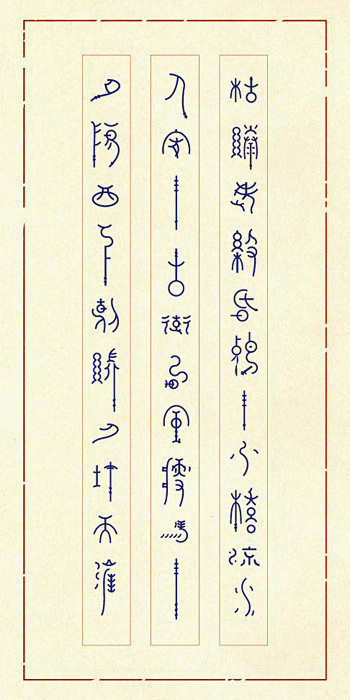 枯藤老樹昏鴉 小橋流水
人家 古道西風瘦馬
夕陽西下斷腸人在天涯